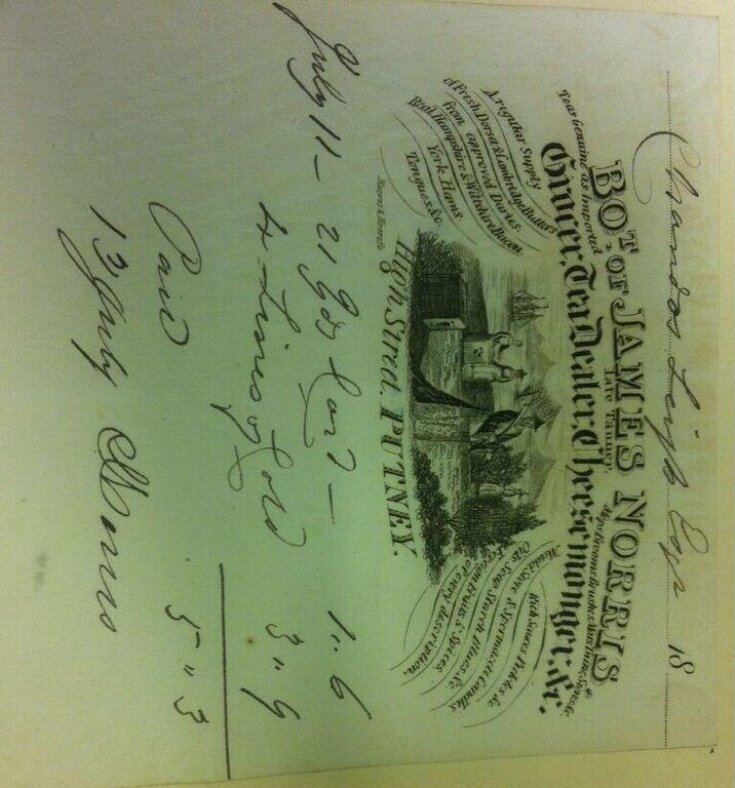 Chandos Leigh Esqr 18
BOT. OF JAMES NORRIS
late Tanner,
Teas Genuine as Imported
Also Brooms Brushes Mats Twine String &c
Grocer, Tea Dealer, Cheesemonger, &c.
A regular Supply
of Fresh Dorset & Cambridge Butters
from approved Daries.
Real Hampshire & Wiltshire Bacon
York Hams
Tongues &c
Rich Sauces Pickles &c
Mould Store & Spermaciti Candles
Oils Soap Starch Blues &c
Foreign Fruits & Spices
of every description.
High Street, PUTNEY.
July 11 — 2 1 — 1 " 6
4 3 " 9
5 " 3
Paid
13 July Norris